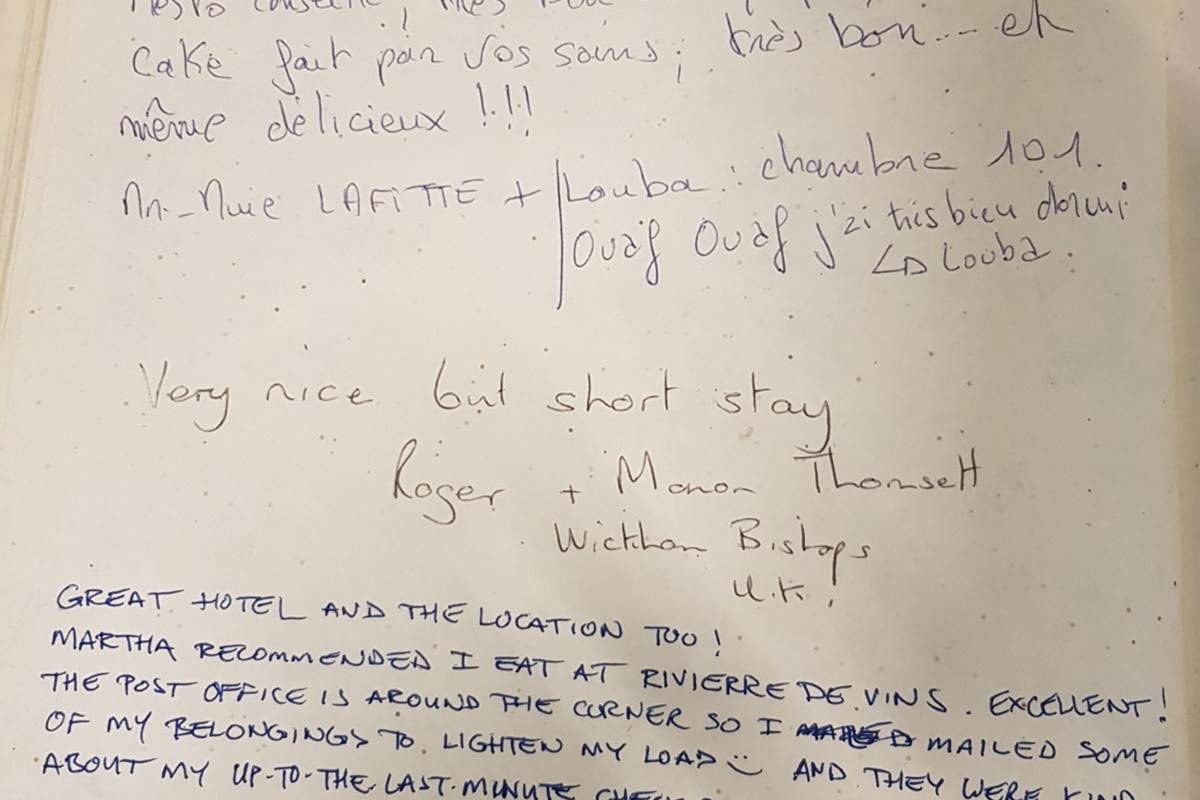 cake fait par vos soins ; très bon.... et
même délicieux !!!
LAFITTE + Louba : chambre 101.
Ouaf Ouaf j'ai très bien dormi
Louba.
Very nice but short stay
Roger + Manon Thomsett
Wickham Bishops
U.K.!
GREAT HOTEL AND THE LOCATION TOO!
MARTHA RECOMMENDED I EAT AT RIVIERRE DE VINS. EXCELLENT!
THE POST OFFICE IS AROUND THE CORNER SO I MAILED SOME
OF MY BELONGINGS TO LIGHTEN MY LOAD AND THEY WERE KIND
ABOUT MY UP-TO-THE-LAST-MINUTE